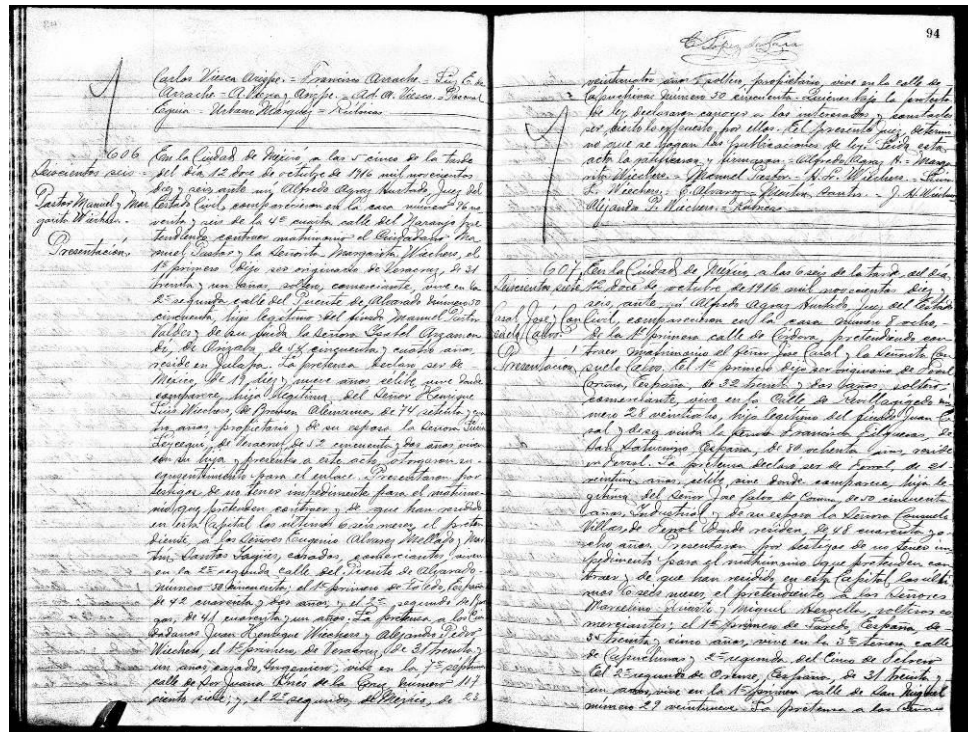 Carlos Viesca Arizpe. = Francisco Arrache = Luz E. de
Arrache = A. Viesca y Arizpe. = Ad. A. Viesca. = Pascual
Eguia = Urbano Márquez = Rúbricas
606
Seiscientos seis =
Pastor Manuel y Mar
garita Wiechers.
Presentación.
En la Ciudad de Méjico, a las 5 cinco de la tarde
del dia 12 doce de octubre de 1916 mil novecientos
diez y seis ante mi Alfredo Agraz Hurtado, Juez del
Estado Civil, comparecieron en la casa número 96 no
venta y seis de la 4ª cuarta calle del Naranjo pre
tendiendo contraer matrimonio el Ciudadano Ma
nuel Pastor y la Señorita Margarita Wiechers, el
1º primero dijo ser originario de Veracruz, de 31
treinta y un años, soltero, comerciante, vive en la
2ª segunda calle del Puente de Alvarado número 50
cincuenta, hijo legítimo del finado Manuel Pastor
Valdes y de su viuda la señora Isabel
de Orizaba, de 54 cincuenta y cuatro años,
reside en Jalapa. La pretensa declaró ser de
México, de 19 diez y nueve años, célibe, vive donde
comparece, hija legítima del Señor Henrique
Luis Wiechers, de Bremen Alemania, de 74 setenta y cua
tro años, propietario y de su esposa la señora
de Veracruz de 52 cincuenta y dos años, viven
con su hija y presentes a este acto, otorgaron su
consentimiento para el enlace. Presentaron por
testigos de no tener impedimento para el matrimo
nio que pretenden contraer y de que han residido
en esta Capital los últimos 6 seis meses, el preten
diente a los Señores Eugenio Alvarez Mellado y Mar
tin Santos casados, comerciantes, viven
en la 2ª segunda calle del Puente de Alvarado
número 50 cincuenta; el 1º primero de Toledo, España
de 42 cuarenta y dos años, y el 2º segundo de Bur
gos, de 41 cuarenta y un años. La pretensa a los Ciu
dadanos Juan Henrique Wiechers y Alejandro Pedro
Wiechers, el 1º primero, de Veracruz, de 31 treinta y
un años, casado, Ingeniero, vive en la 7ª septima
calle de Sor Juana Ines de la Cruz, número 117
ciento siete; y, el 2º segundo, de Mejico, de 23
94
veintitres años, soltero, propietario, vive en la calle de
Capuchinas número 50 cincuenta. Quienes bajo la protesta
de ley, declararon conocer a los interesados y constarles
ser cierto lo expuesto por ellos. El presente Juez determi
nó que se hagan las publicaciones de ley. Leida esta
acta la ratificaron y firmaron = Alfredo Agraz H. = Marga
rita Wiechers. = Manuel Pastor = H. L. Wiechers =
L. Wiechers. = E. Alvarez = Martin Santos. = J. H. Wiechers
Alejandro P. Wiechers. = Rúbricas
607
Seiscientos siete
Casal José y Con
suelo Calvo.
Presentación.
En la Ciudad de Méjico, a las 6 seis de la tarde, del dia
12 doce de octubre de 1916 mil novecientos diez y
seis, ante mi Alfredo Agraz Hurtado, Juez del Estado
Civil, comparecieron en la casa número 8 ocho,
de la 1ª primera calle de Córdova, pretendiendo con
traer matrimonio el Señor José Casal y la Señorita Con
suelo Calvo. El 1º primero dijo ser originario de Ferrol
Coruña, España, de 32 treinta y dos años, soltero,
comerciante, vive en la Calle de Revillagigedo nú
mero 28 veintiocho, hijo legítimo del finado Juan Ca
sal y de su viuda la Señora Francisca Filgueiras, de
San Saturnino, España, de 80 ochenta años, reside
en Ferrol. La pretensa declaró ser de Ferrol, de 21
veintiun años, célibe, vive donde comparece, hija le
gítima del Señor José Calvo de Coruña, de 50 cincuenta
años, Industrial y de su esposa la Señora Consuelo
Villar, de Ferrol donde residen, de 48 cuarenta y o
cho años. Presentaron por testigos de no tener im
pedimento para el matrimonio que pretenden con
traer y de que han residido en esta Capital, los últi
mos 6 seis meses, el pretendiente, a los Señores
Marcelino y Miguel solteros, co
merciantes; el 1º primero de España, de
35 treinta y cinco años, vive en la 3ª tercera calle
de Capuchinas y 2ª segunda del Cinco de Febrero
El 2º segundo de Orense, España, de 31 treinta y
un años, vive en la 1ª primera calle de San Miguel
número 29 veintinueve. = La pretensa a los Señores